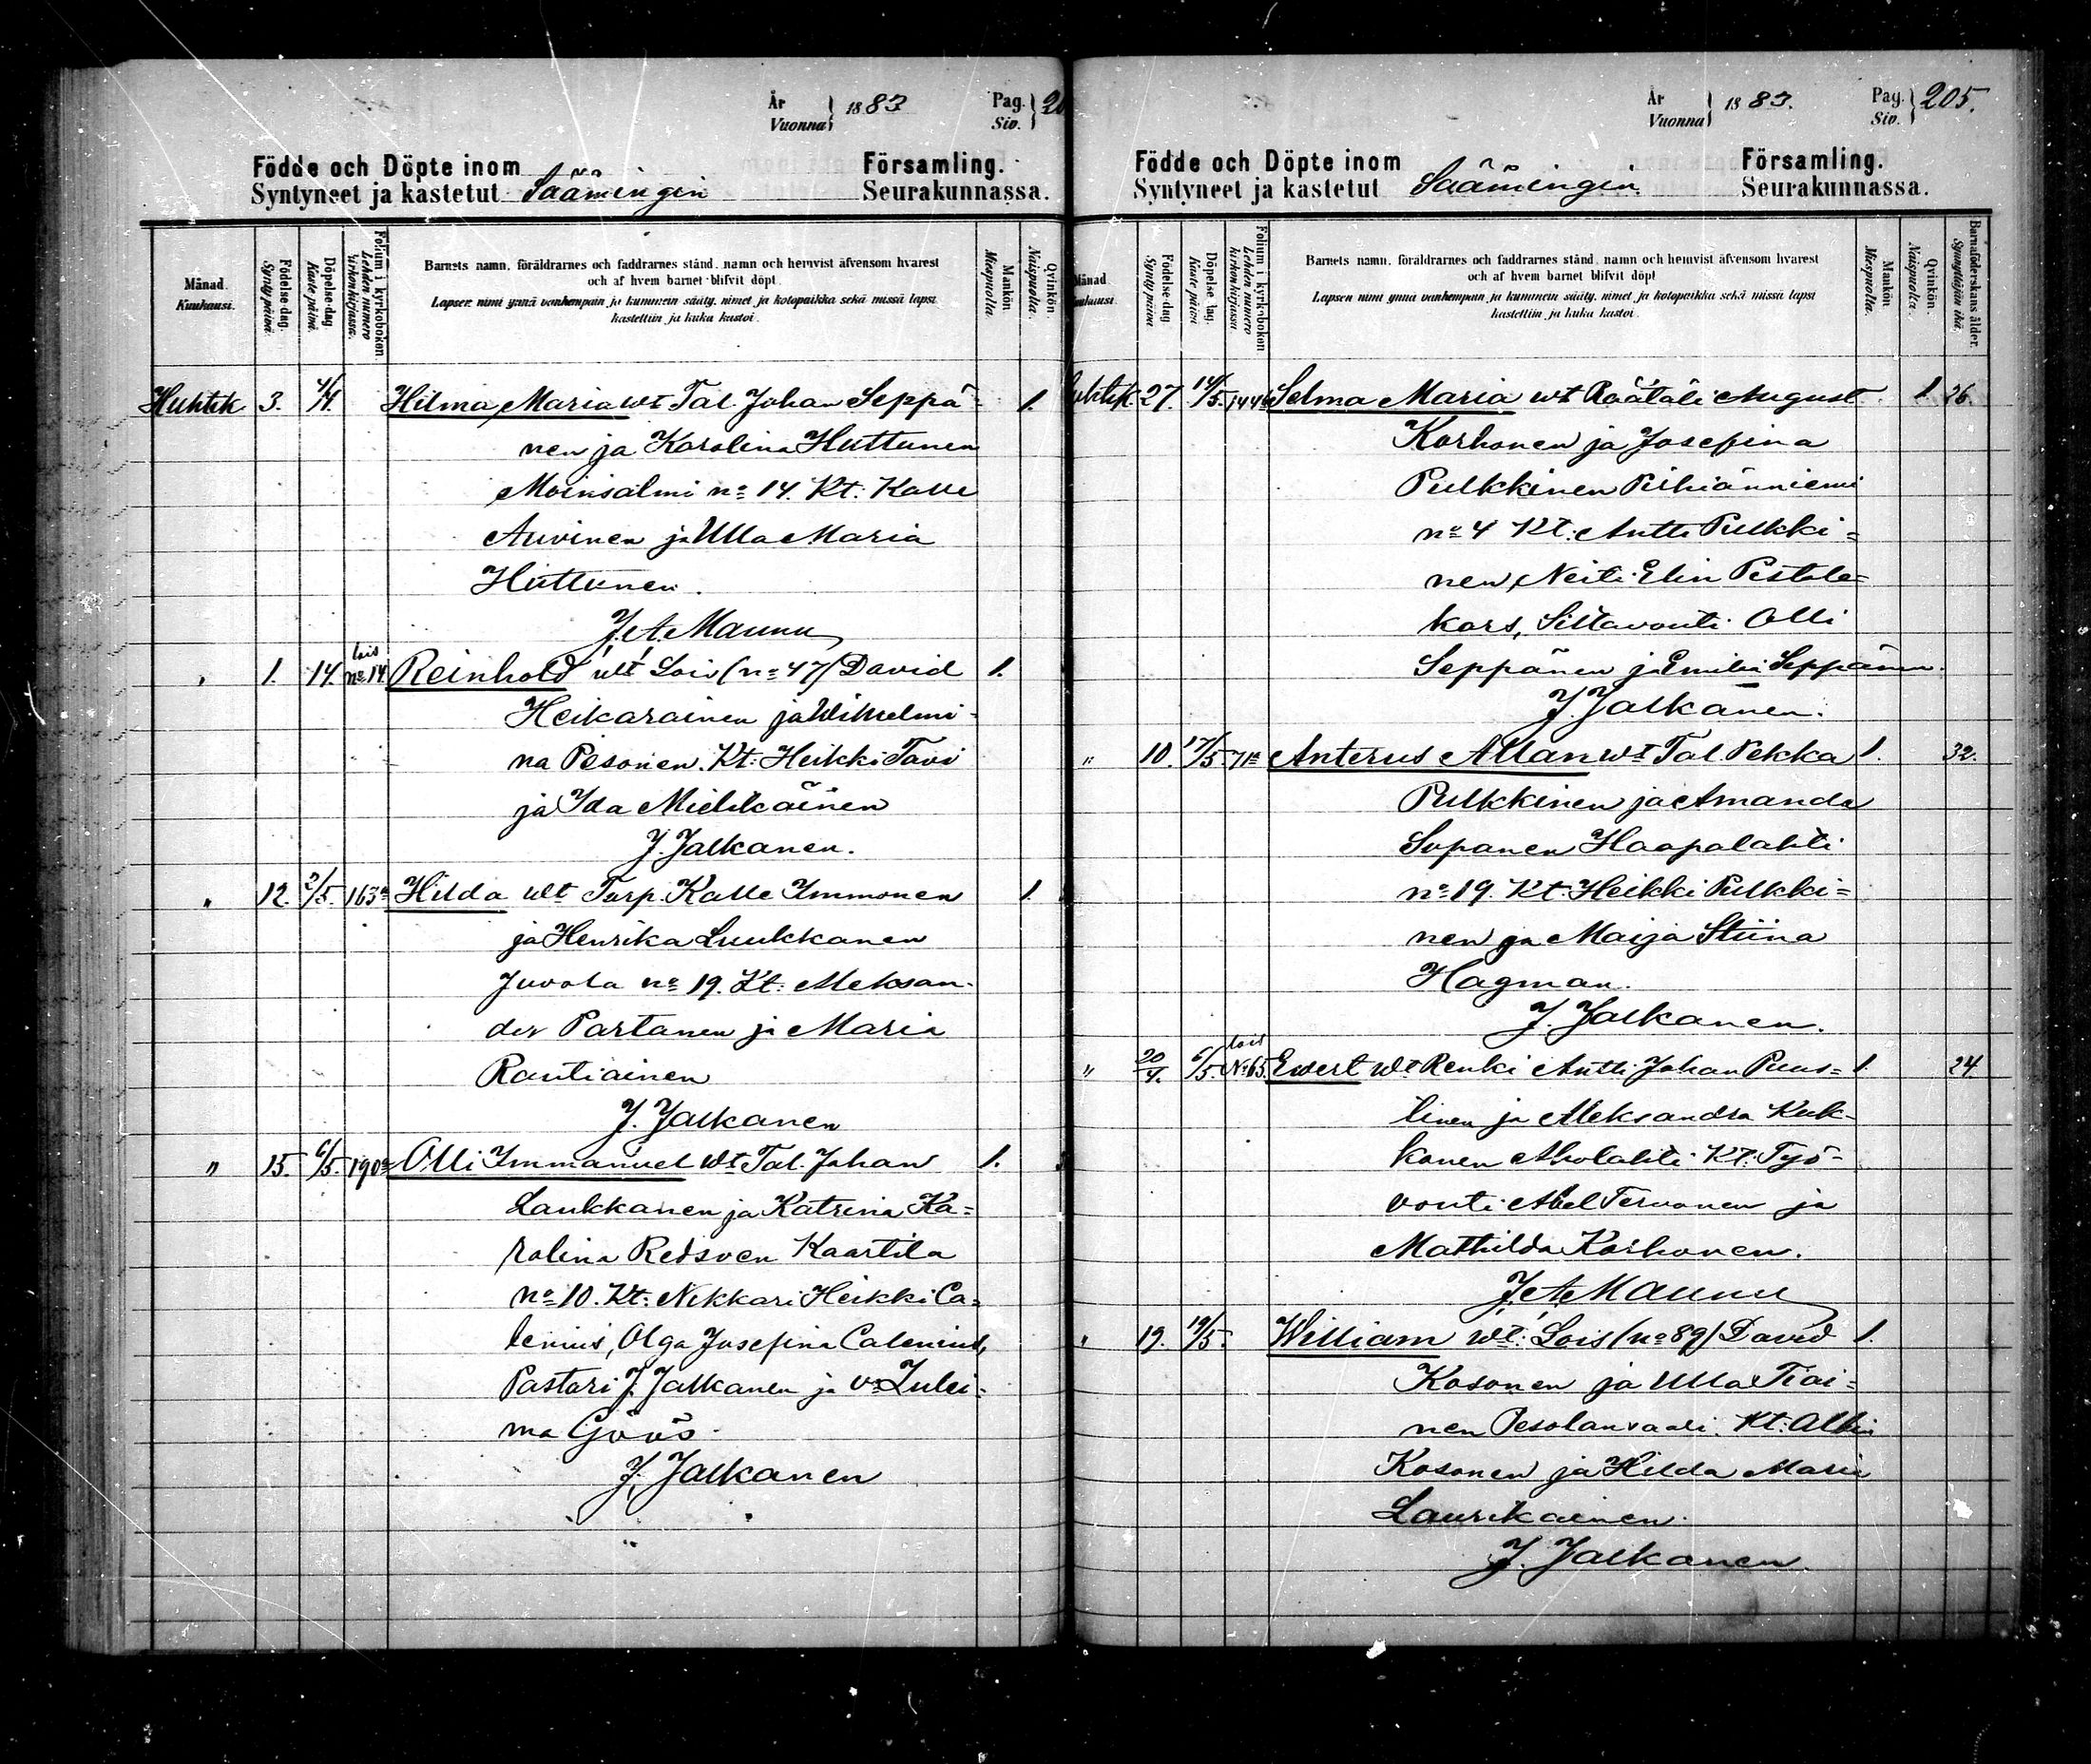 År
Vuonna
1883
Pag.
Siv.
20
Födde och Döpte inom
Församling.
Syntyneet ja kastetut Säämingin
Seurakunnassa.
Månad.
Kuukausi.
Födelse dag.
Synty päivä.
Döpelse dag.
Kaste päivä.
Folium i kyrkobokon.
Lehden numero
kirkonkirjassa.
Barnets namn, föräldrarnes och faddrarnes stånd, namn och hemvist äfvensom hvarest
och af hvem barnet blifvit döpt.
Lapsen nimi ynnä vanhempain ja kummein sääty, nimet ja kotopaikka sekä missä lapsi
kastettiin ja kuka kastoi.
Mankön
Miespuolia.
Qvinkön.
Naispuolia.
Huhtik 3. 4/4. Hilma Maria wt Tal. Johan Seppä- 1.
nen ja Karolina Huttunen
Moinsalmi no 14. Kt: Kalle
Auvinen ja Ulla Maria
Huttunen.
J. A. Maunu
lois
" 1. 14. no 14 Reinhold wt Lois (no 47) David 1.
Heikarainen ja Wilhelmi-
na Pesonen. Kt: Heikki Tavi
ja Ida Miehikäinen
J. Jalkanen.
" 12. 2/5. 163 Hilda wt Torp. Kalle Immonen 1.
ja Henrika Luukkanen
Juvola no 19. Kt: Aleksan-
der Partanen ja Maria
Rautiainen
J. Jalkanen
" 15. 6/5. 190 Olli Immanuel wt Tal. Johan 1.
Laukkanen ja Katrina Ka=
rolina Redsven Kaartila
no 10. Kt: Nikkari Heikki Ca=
lenius, Olga Josefina Calenius,
Pastori J. Jalkanen ja va Zulei-
ma Göös.
J. Jalkanen
År
Vuonna
1883.
Pag.
Siv.
205.
Födde och Döpte inom
Församling.
Syntyneet ja kastetut Säämingin.
Seurakunnassa.
Månad
Kuukausi.
Födelse dag
Synty päivä
Döpelse dag.
Kaste päivä
Folium i kyrkobokon
Lehden numero
kirkonkirjassa
Barnets namn, föräldrarnes och faddrarnes stånd, namn och hemvist äfvensom hvarest
och af hvem barnet blifvit döpt
Lapsen nimi ynnä vanhempain ja kummein sääty, nimet ja kotopaikka sekä missä lapsi
kastettiin ja kuka kastoi.
Mankön
Miespuolia.
Qvinkön.
Naispuolia
Barnaföderskans ålder.
Synnyttäjän ikä.
Huhtik. 27. 14/5. 144 Selma Maria wt Räätäli August 1. 26.
Korhonen ja Josefina
Pulkkinen Pihjänniemi
no 4 Kt: Antti Pulkki=
nen, Neiti Elin Pistole=
kors, Siltavouti Olli
Seppänen ja Emilia Seppänen.
J. Jalkanen.
" 10. 17/5. 71 Anterus Allan wt Tal. Pekka 1. 32.
Pulkkinen ja Amanda
Sopanen Haapalahti
no 19. Kt: Heikki Pulkki=
nen ja Maija Stiina
Hagman.
J. Jalkanen.
lois
" 20/4. 6/5. No 65. Ewert wt Renki Antti Johan Puus= 1. 24.
tinen ja Aleksandra Kuk-
konen Aholahti Kt: Työ-
vouti Abel Tervonen ja
Mathilda Korhonen.
J. A. Maunu
" 19. 19/5. William wt: Lois (no 89) David 1.
Kosonen ja Ulla Tiai=
nen Pesolansaari. Kt: Albin
Kosonen ja Hilda Maria
Laurikainen.
J. Jalkanen.